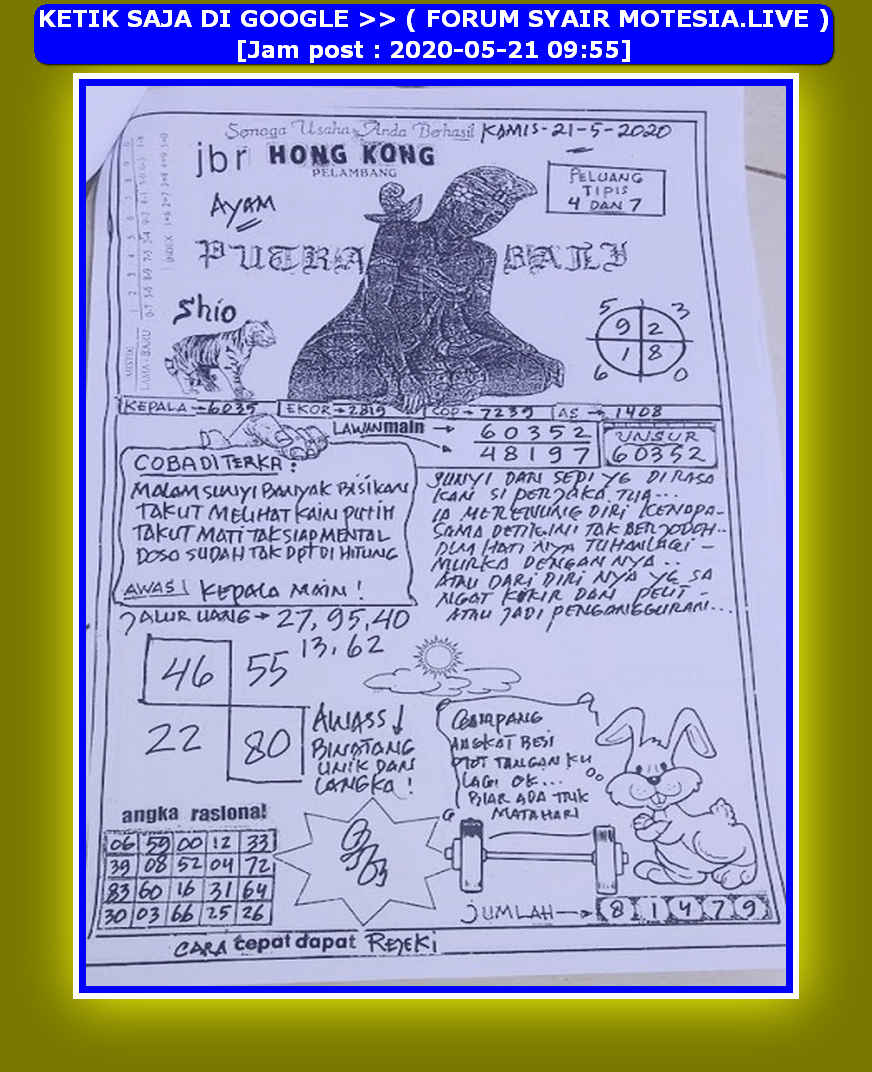 KETIK SAJA DI GOOGLE >> ( FORUM SYAIR MOTESIA.LIVE )
[Jam post : 2020-05-21 09:55]
Semoga Usaha Anda Berhasil KAMIS-21-5-2020
jbr HONG KONG
PELAMBANG
PELUANG
TIPIS
4 DAN 7
AYAM
PUTRA BALI
Shio
5 3
9 2
1 8
6 0
MISTIK
LAMA - BARU
INDEX
KEPALA → 6035 EKOR → 2819 COP → 7239 AS → 1408
LAWAN main → 60352
48197
UNSUR
60352
COBA DI TERKA :
MALAM SUNYI BANYAK BISIKAN
TAKUT MELIHAT KAIN PUTIH
TAKUT MATI TAK SIAP MENTAL
DOSO SUDAH TAK DPT DI HITUNG
AWAS! KEPALA MAIN !
SUNYI DAN SEPI YG DI RASA
KAN SI PERJAKA TUA...
IA MERENUNG DIRI KENAPA-
SAMA DETIK INI TAK BERJODOH..
DLM HATI NYA TUHAN LAGI -
MURKA DENGAN NYA..
ATAU DARI DIRI NYA YG SA
NGAT KIKIR DAN PELIT -
ATAU JADI PENGANGGURAN...
JALUR UANG → 27, 95, 40
13, 62
46 55
22 80
AWASS!
BINATANG
UNIK DAN
LANGKA !
GAMPANG
ANGKAT BESI
OTOT TANGAN KU
LAGI OK...
BIAR ADA TRIK
MATAHARI
angka rasional
06 59 00 12 33
39 08 52 04 72
83 60 16 31 64
30 03 66 25 26
JUMLAH → 8 1 4 7 9
CARA cepat dapat REJEKI